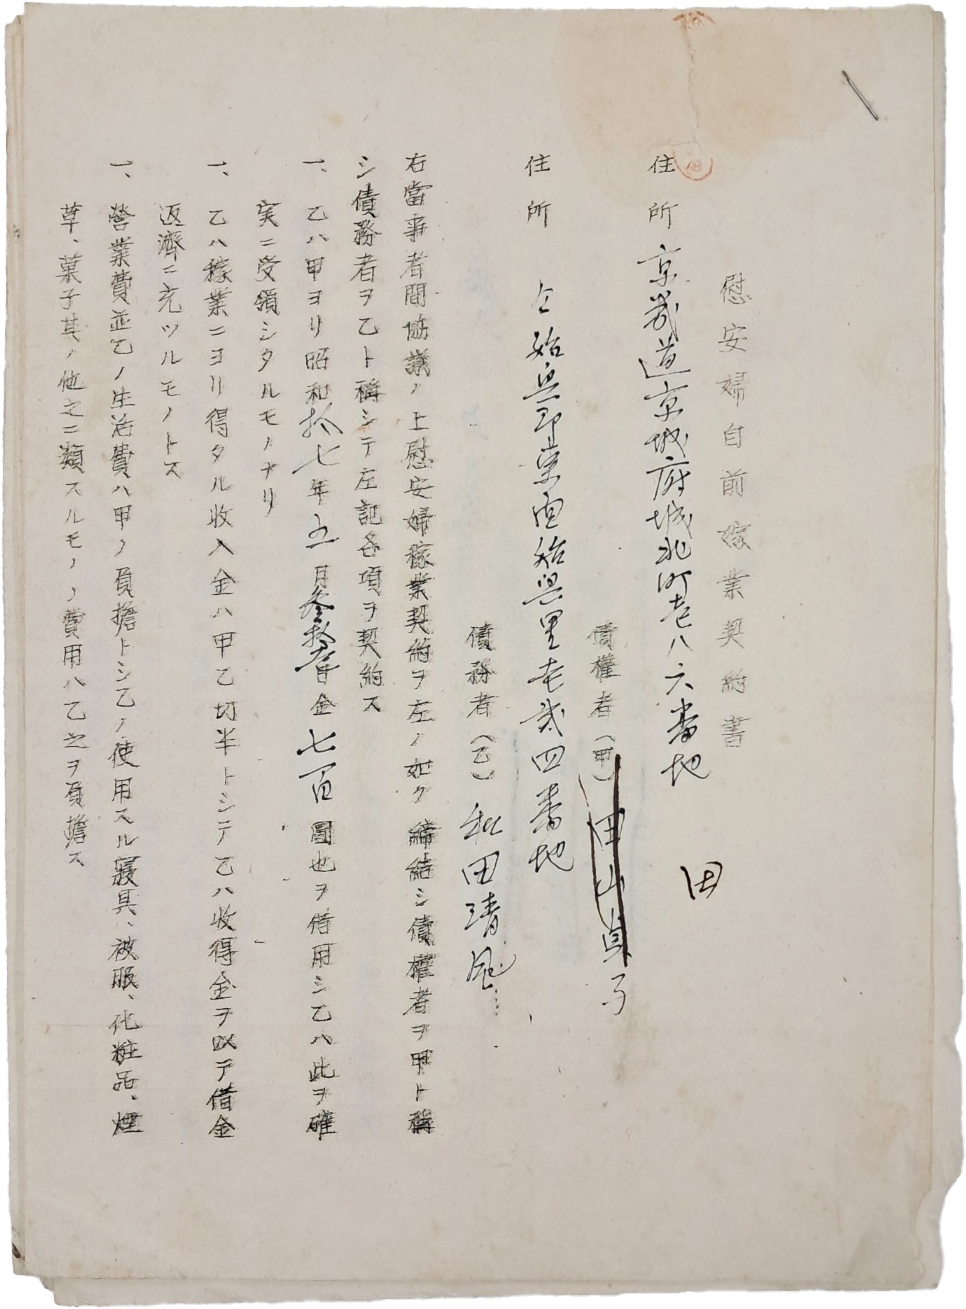 慰安婦自前稼業契約書
住所 京畿道京城府城北町壱八六番地
債權者(甲) 田山貞子
田
住所 仝始興郡東面始興里壱弐四番地
債務者(乙) 秋田清風
右當事者間協議ノ上慰安婦稼業契約ヲ左ノ如ク締結シ債權者ヲ甲ト稱
シ債務者ヲ乙ト稱シテ左記各項ヲ契約ス
一、乙ハ甲ヨリ昭和拾七年五月参拾日金七百圓也ヲ借用シ乙ハ此ヲ確
実ニ受領シタルモノナリ
一、乙ハ稼業ニヨリ得タル收入金ハ甲乙切半トシテ乙ハ收得金ヲ以テ借金
返濟ニ充ツルモノトス
一、營業費並乙ノ生活費ハ甲ノ負擔トシ乙ノ使用スル寝具、被服、化粧品、煙
草、菓子其ノ他之ニ類スルモノノ費用ハ乙之ヲ負擔ス